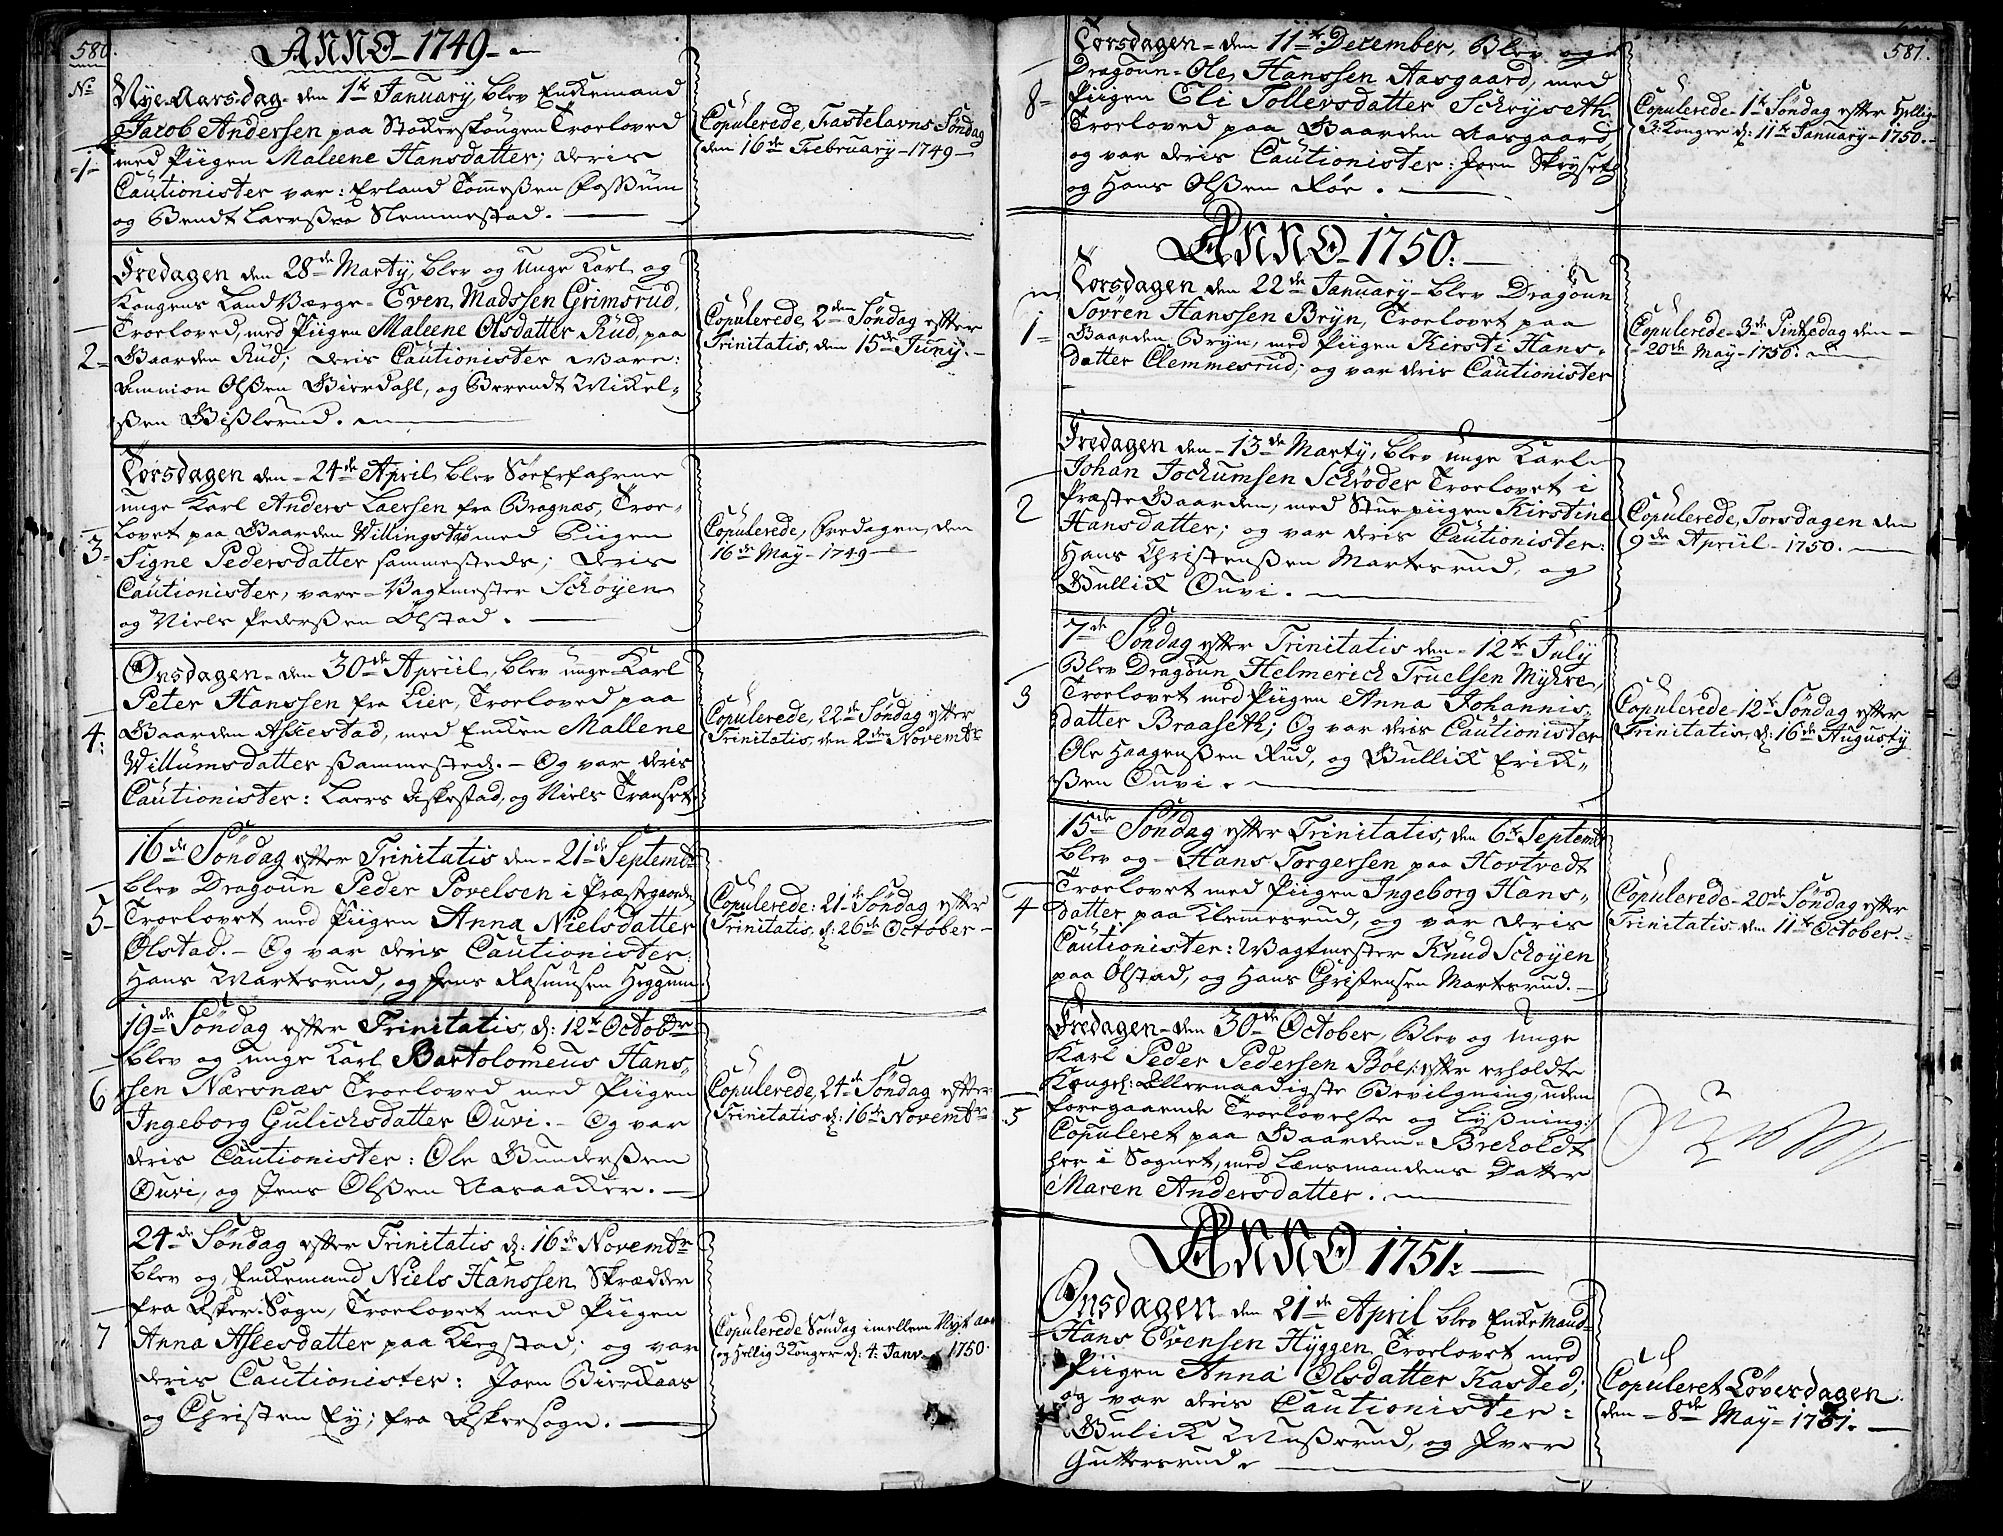 580.
ANNO 1749
No
Nye-Aars-dag den 1te January, blev Enkemand
Jacob Andersen paa Stokerskougen Troeloved
-1- med Piigen Maleene Hansdatter; deris
Cautionister var: Erland Tommesßen Fossum
og Bendt Laersßen Slemmestad.
Copulerede, Fastelavns Søndag
den 16de February - 1749
Fredagen den 28de Marty, blev og unge Karl og
Kongens Land Værge - Even Madssen Grimsrud,
Troeloved, med Piigen Maleene Olsdatter Rud, paa
2- Gaarden Rud; deris Cautionister vare:
Amnion Olsßen Bierdahl, og Berendt Mickel-
sßen Gisßlerud.
Copulerede, 2den Søndag efter
Trinitatis, den 15de Juny.
Torsdagen den - 24de April, blev SøeErfahrne
unge Karl Anders Laersen fra Bragnæs, Troe-
lovet paa Gaarden Willingstad med Piigen
3- Signe Pedersdatter sammesteds; deris
Cautionister, vare - Vagtmester Schøyen
og Niels Pedersßen Ølstad.
Copulerede, Fredagen, den
16de May - 1749
Onsdagen - den 30de Apriil, blev unge Karl
Peter Hanssen fra Lier, Troeloved paa
4: Gaarden Askestad, med Enken Mallene
Willumsdatter sammesteds. - Og var deris
Cautionister: Laers Askestad, og Niels Transet
Copulerede, 22de Søndag efter
Trinitatis, den 2den Novembr
16de Søndag efter Trinitatis den - 21de Septembr
blev Dragoun Peder Povelsen i Præstegaarden
5- Troelovet med Piigen Anna Nielsdatter
Ølstad. - Og var deris Cautionister:
Hans Martesrud, og Jens Rasmusen Heggum
Copulerede: 21de Søndag efter
Trinitatis, d: 26de October -
19de Søndag efter Trinitatis, d: 12te Octobr
blev og unge Karl Bartolomeus Hans-
6 sen Næsnæs Troeloved med Piigen
Ingeborg Gulichsdatter Ouvi. - Og var
deris Cautionister: Ole Gundersßen
Ouvi, og Jens Olsßen Aaraaker.
Copulerede, 24de Søndag efter
Trinitatis d: 16de Novembr
24de Søndag efter Trinitatis d: 16de Novembr
blev og Enkemand Niels Hanssen Skrædder
fra Asker-Sogn, Troelovet med Piigen
7 Anna Aslesdatter paa Klegstad; og var
deris Cautionister: Joen Bierkaas
og Christen Ey; fra Askersogn.
Copulerede Søndag imellem Nyt aar
og Hellig 3 Konger d: 4: Janv - 1750.
581.
Torsdagen - den 11te December, Blev og
Dragoun - Ole Hanssen Aasgaard, med
8- Piigen Eli Tollersdatter Schrysæth
Troeloved paa Gaarden Aasgaard,
og var deris Cautionister: Joen Skrysetg
og Hans Olsßen Røe.
Copulerede - 1te Søndag efter Hellig
3: Konger d: 11te January - 1750.
ANNO 1750.
Torsdagen den 22de January - blev Dragoun
Sövren Hanssen Bryn, Troelovet paa
1- Gaarden Bryn, med Piigen Kirsti Hans-
datter Clemmesrud; og var deris Cautionister
Copulerede - 3de Pintzedag den -
- 20de May - 1750.
Fredagen den - 13de Marty, blev unge Karl
Johan Jochumsen Schrøder Troelovet i
2 Præste Gaarden, med Stuepiigen Kirstine
Hansdatter; og var deris Cautionister:
Hans Christensßen Martesrud, og
Gullick Ouvi.
Copulerede, Torsdagen den
9de Apriil - 1750.
7de Søndag efter Trinitatis den - 12te July
Blev Dragoun Helmerich Truelsen Myhre,
3 Troelovet med Piigen Anna Johannis-
datter Braaseth; Og var deris Cautionister
Ole Haagensßen Rud, og Gullick Erick-
sßen Ouvi.
Copulerede - 12te Søndag efter
Trinitatis, d: 16de Augusty
15de Søndag efter Trinitatis, den 6te Septembr
blev og - Hans Torgersen paa Hortvedt
Troelovet med Piigen Ingeborg Hans-
4 datter paa Klemesrud, og var deris
Cautionister: Vagtmester Knud Schøyen
paa Ølstad, og Hans Christensen Martesrud.
Copulerede - 20de Søndag efter
Trinitatis - den 11te October.
Fredagen - den 30de October, Blev og unge
Karl Peder Pedersen Böe /: efter erholdte
Kongel: Allernaadigste Bevilgning, uden
5 foregaaende Troelovelse og lysning :/
Copuleret paa Gaarden - Breholdt
her i Sognet, med Lænsmandens Datter
Maren Andersdatter.
ANNO 1751.
Onsdagen den 21de April blev Enkemand
Hans Evensen Hyggen, Troelovet med
Piigen Anna Olsdatter Kasted;
og var deris Cautionister:
Gulick Musßerud, og Iver
Guttersrud
Copuleret Løverdagen
den - 8de May - 1751.